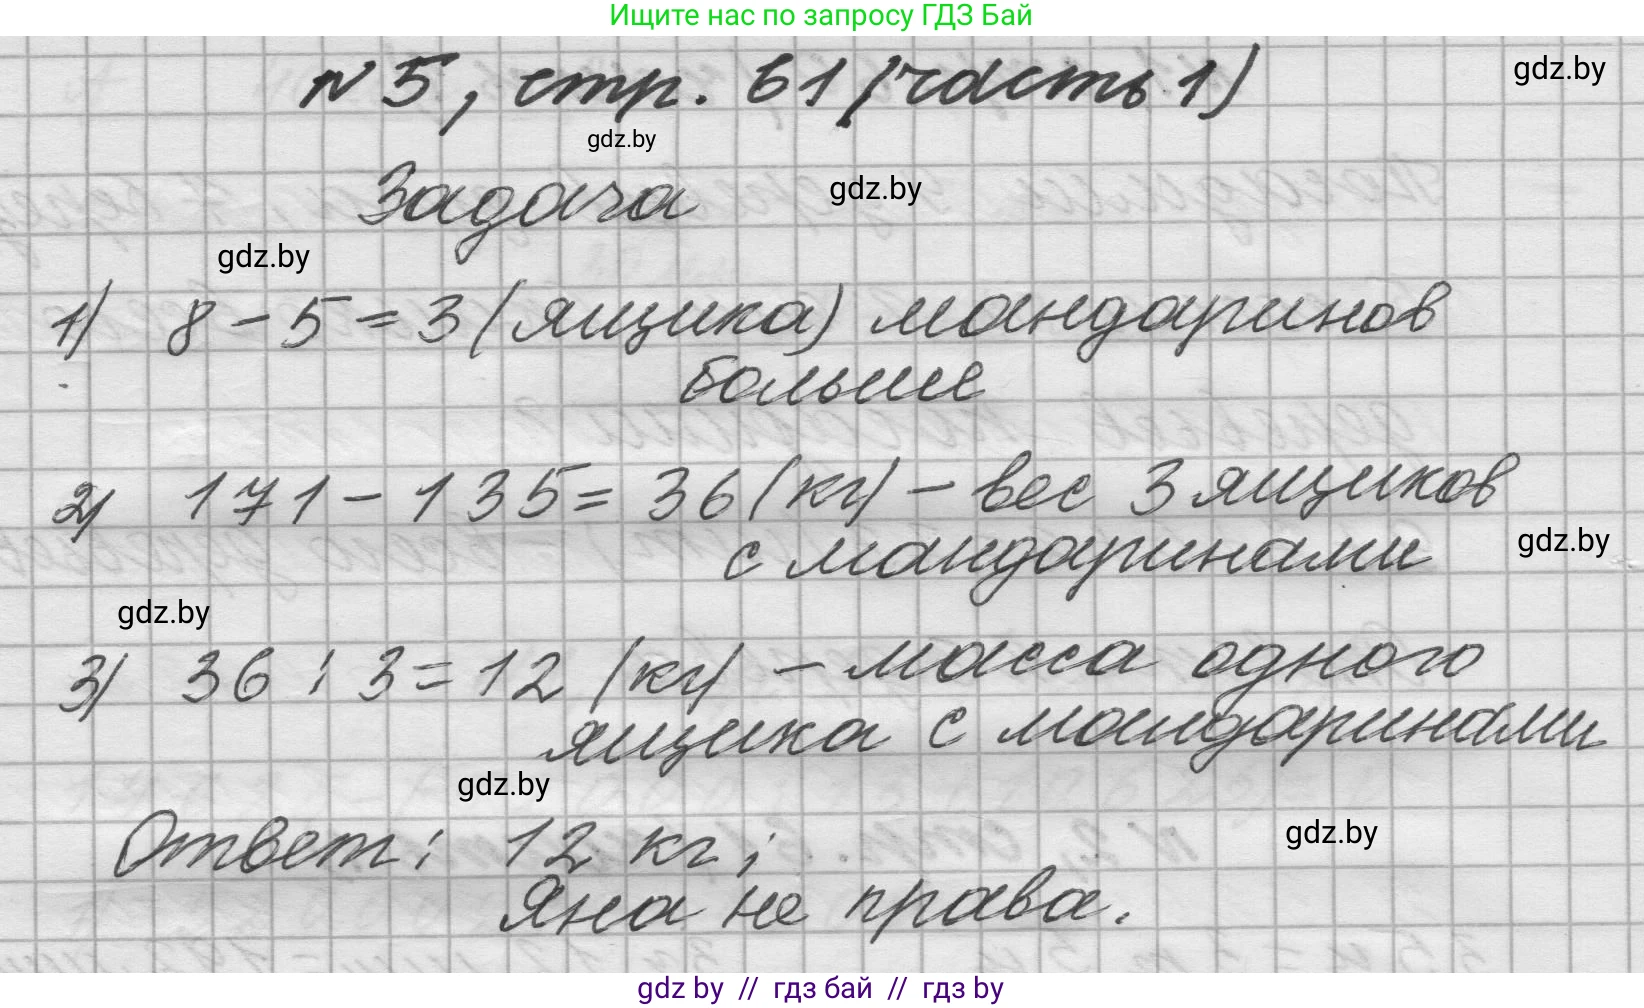 Ищите нас по запросу ГДЗ Бай
N 5, стр. 61 (часть 1)
gdz.by
gdz.by
Задача
gdz.by
gdz.by
1) 8 - 5 = 3 (ящика) мандаринов
больше
2) 171 - 135 = 36 (кг) - вес 3 ящиков
с мандаринами
gdz.by
gdz.by
3) 36 : 3 = 12 (кг) - масса одного
ящика с мандаринами
gdz.by
Ответ: 12 кг;
gdz.by
Яна не права.
gdz by // гдз бай // гдз by